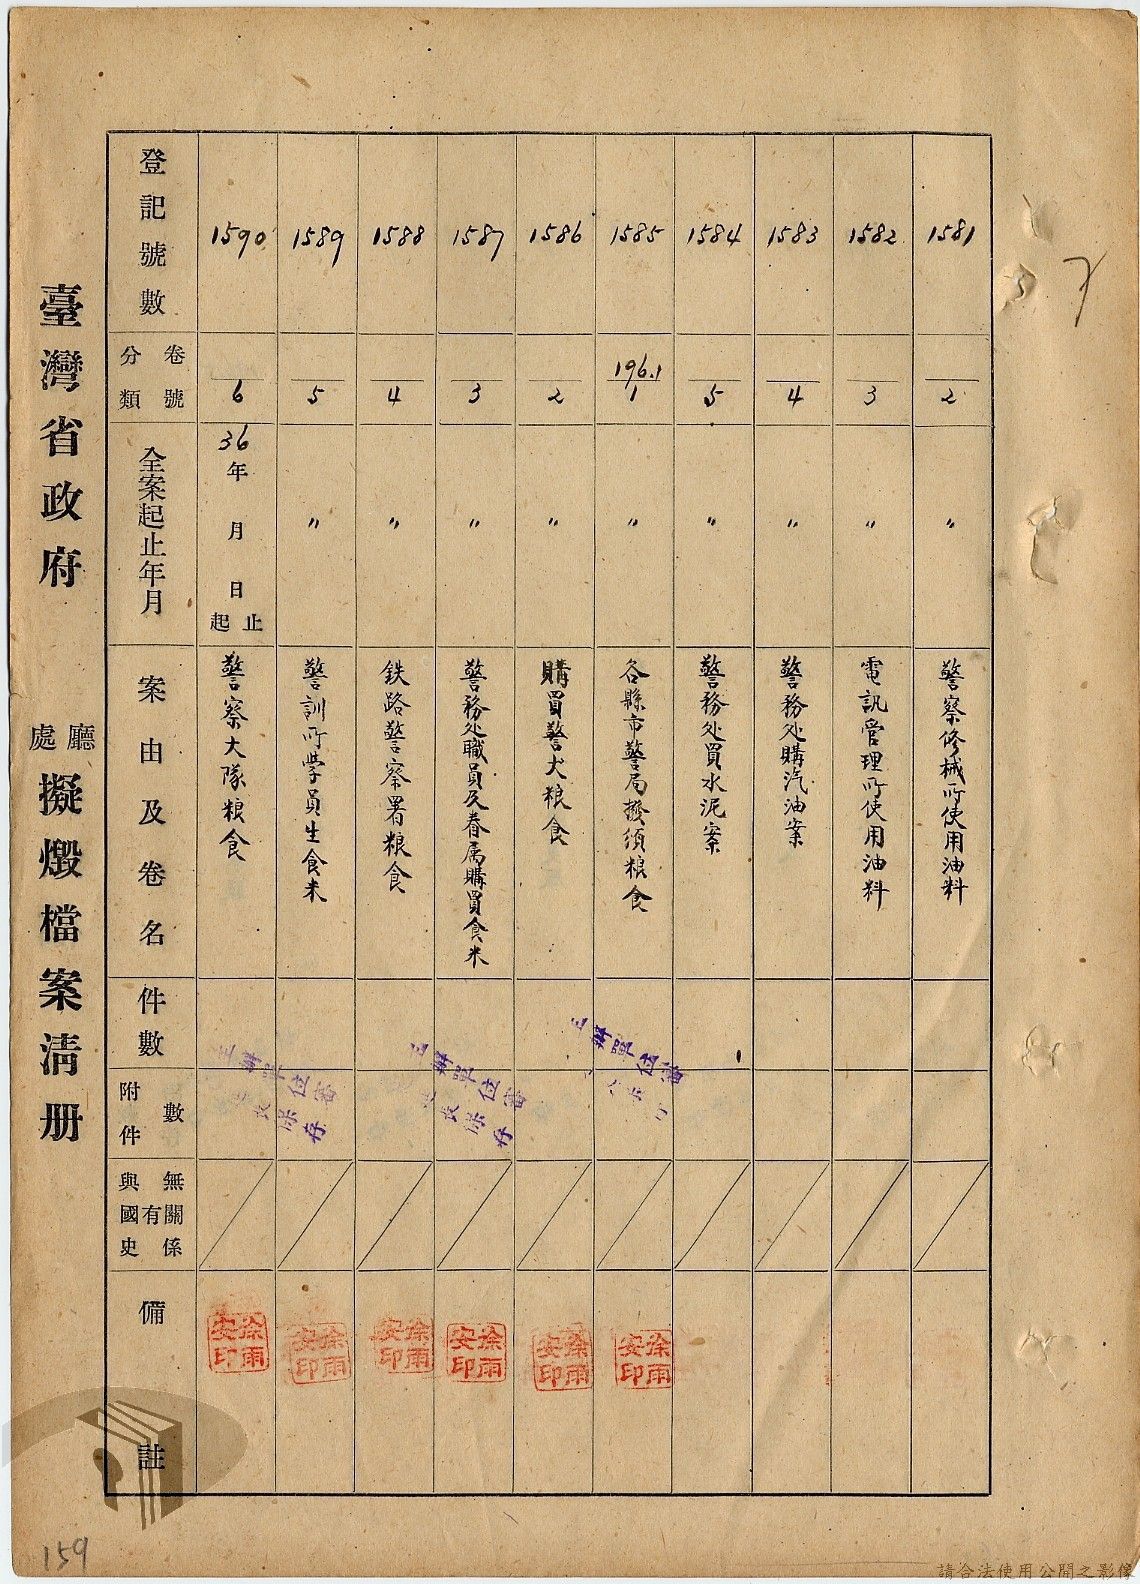 臺灣省政府 廳處 擬燬檔案清册
登記號數
分類 卷號
全案起止年月
案由及卷名
件數
附件數
與國史有無關係
備註
1581
2
〃
警察修械所使用油料
1582
3
〃
電訊管理所使用油料
1583
4
〃
警務处購汽油案
1584
5
〃
警務处買水泥案
1585
196.1
1
〃
各縣市警局撥須粮食
徐雨安印
1586
2
〃
購買警犬粮食
徐雨安印
1587
3
〃
警務处職員及眷属購買食米
徐雨安印
1588
4
〃
鉄路警察署粮食
徐雨安印
1589
5
〃
警訓所學員生食米
徐雨安印
1590
6
36年 月 日 起止
警察大隊粮食
徐雨安印
主辦單位審
主辦單位審
保存
主辦單位審
保存
159
請合法使用公開之影像